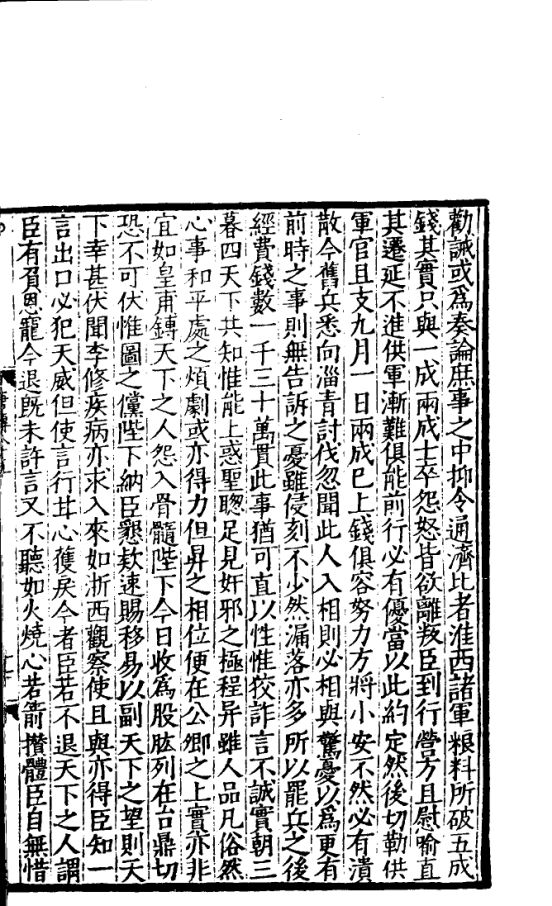 勸誡或爲奏論庶事之中抑令通濟比者淮西諸軍粮料所破五成
錢其實只與一成兩成士卒怨怒皆欲離叛臣到行營方且慰喻直
其遷延不進供軍漸難俱能前行必有優當以此約定然後切勒供
軍官且支九月一日兩成巳上錢俱容努力方將小安不然必有潰
散今舊兵悉向淄青討伐忽聞此人入相則必相與驚憂以爲更有
前時之事則無告訴之憂雖侵刻不少然漏落亦多所以罷兵之後
經費錢數一千三十萬貫此事猶可直以性惟狡詐言不誠實朝三
暮四天下共知惟能上惑聖聦足見奸邪之極程异雖人品凡俗然
心事和平處之煩劇或亦得力但昇之相位便在公卿之上實亦非
宜如皇甫鎛天下之人怨入骨髓陛下今日收爲股肱列在台鼎切
恐不可伏惟圖之儻陛下納臣懇欵速賜移易以副天下之望則天
下幸甚伏聞李修疾病亦求入來如浙西觀察使且與亦得臣知一
言出口必犯天威但使言行甘心獲戾今者臣若不退天下之人謂
臣有負恩寵今退旣未許言又不聽如火燒心若箭攢體臣自無惜